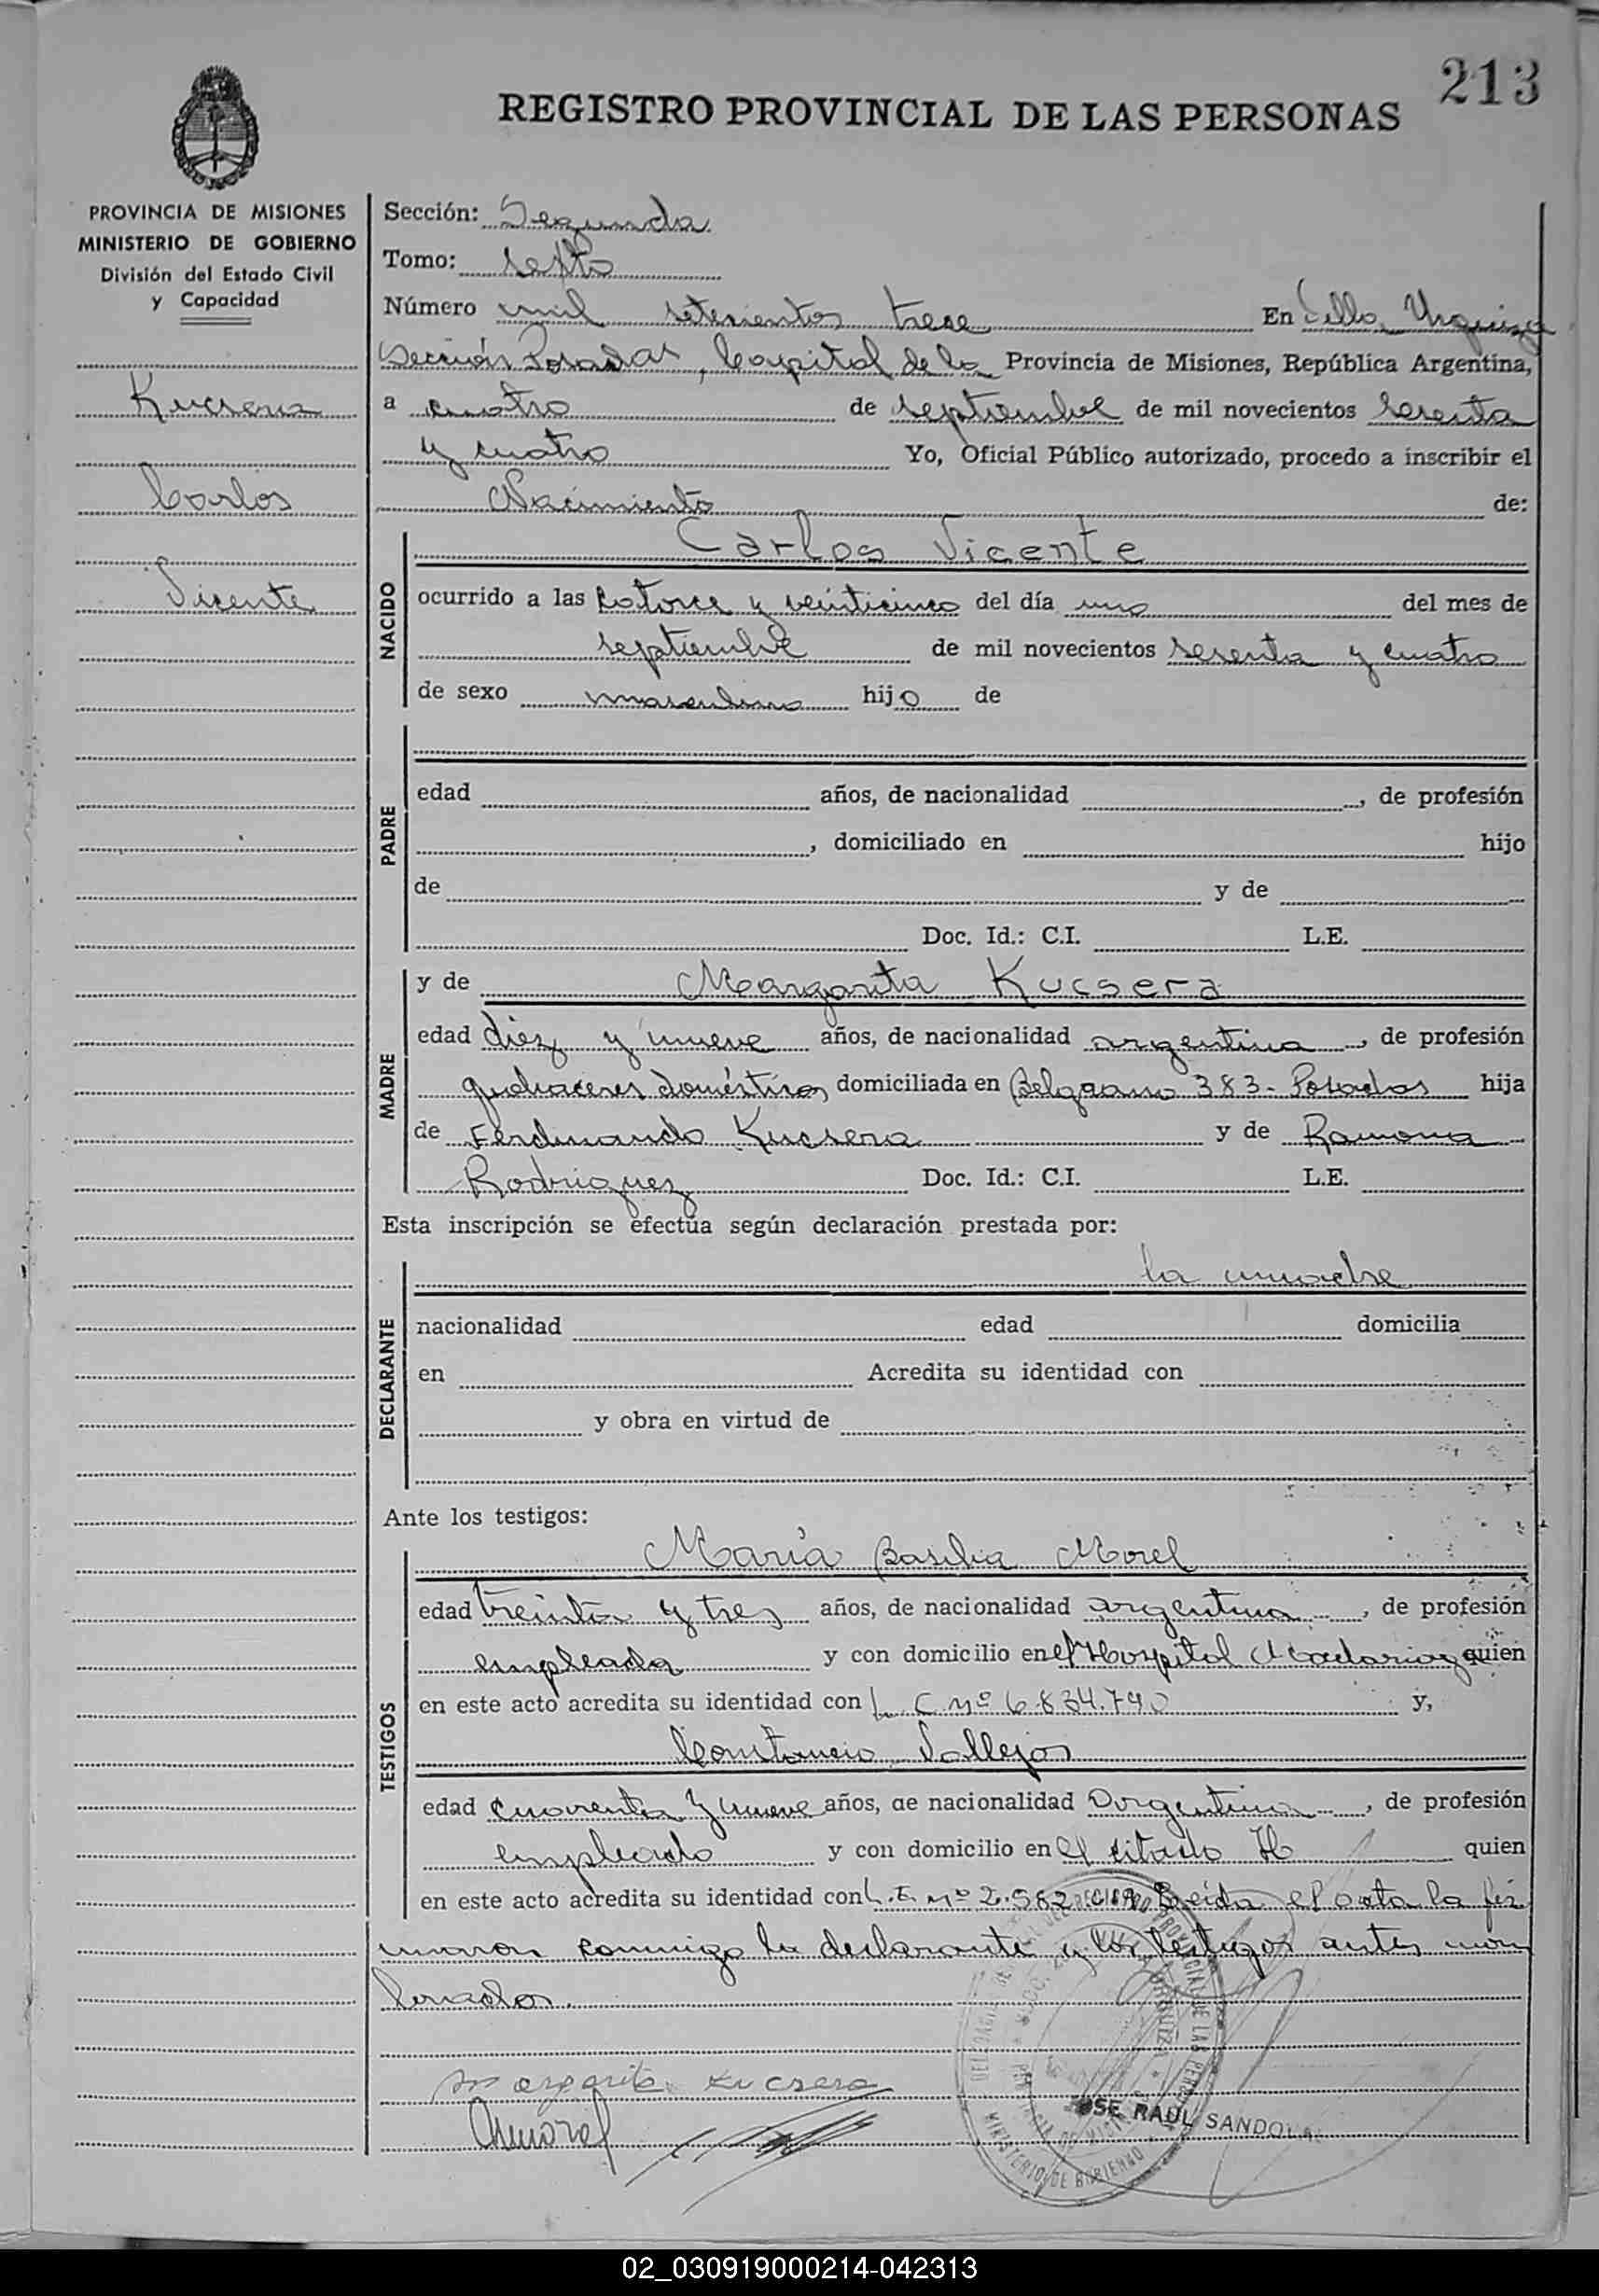 213
REGISTRO PROVINCIAL DE LAS PERSONAS
PROVINCIA DE MISIONES
MINISTERIO DE GOBIERNO
División del Estado Civil
y Capacidad
Kucsera
Carlos
Vicente
Sección: Segunda
Tomo: sexto
Número mil setecientos trece En Villa Urquiza
Sección Posadas, Capital de la Provincia de Misiones, República Argentina,
a cuatro de septiembre de mil novecientos sesenta
y cuatro Yo, Oficial Público autorizado, procedo a inscribir el
Nacimiento de:
NACIDO
Carlos Vicente
ocurrido a las catorce y veinticinco del día uno del mes de
septiembre de mil novecientos sesenta y cuatro
de sexo masculino hijo de
PADRE
edad años, de nacionalidad , de profesión
, domiciliado en hijo
de y de
Doc. Id.: C.I. L.E.
MADRE
y de Margarita Kucsera
edad diez y nueve años, de nacionalidad argentina, de profesión
quehaceres domésticos domiciliada en Belgrano 383 - Posadas hija
de Ferdinando Kucsera y de Ramona
Rodriguez Doc. Id.: C.I. L.E.
Esta inscripción se efectúa según declaración prestada por:
DECLARANTE
la madre
nacionalidad edad domicilia
en Acredita su identidad con
y obra en virtud de
Ante los testigos:
TESTIGOS
María Basilia Morel
edad treinta y tres años, de nacionalidad argentina, de profesión
empleada y con domicilio en el Hospital Madariaga quien
en este acto acredita su identidad con L. C. Nº 6.834.790 y,
Constancio Vallejos
edad cuarenta y nueve años, de nacionalidad Argentina, de profesión
empleado y con domicilio en el citado H quien
en este acto acredita su identidad con L.E. Nº 2.582. Leída el acta la fir
maron conmigo la declarante y los testigos antes nom
brados.
Margarita Kucsera
MMorel
JOSE RAUL SANDOVAL
MINISTERIO DE GOBIERNO
02_030919000214-042313